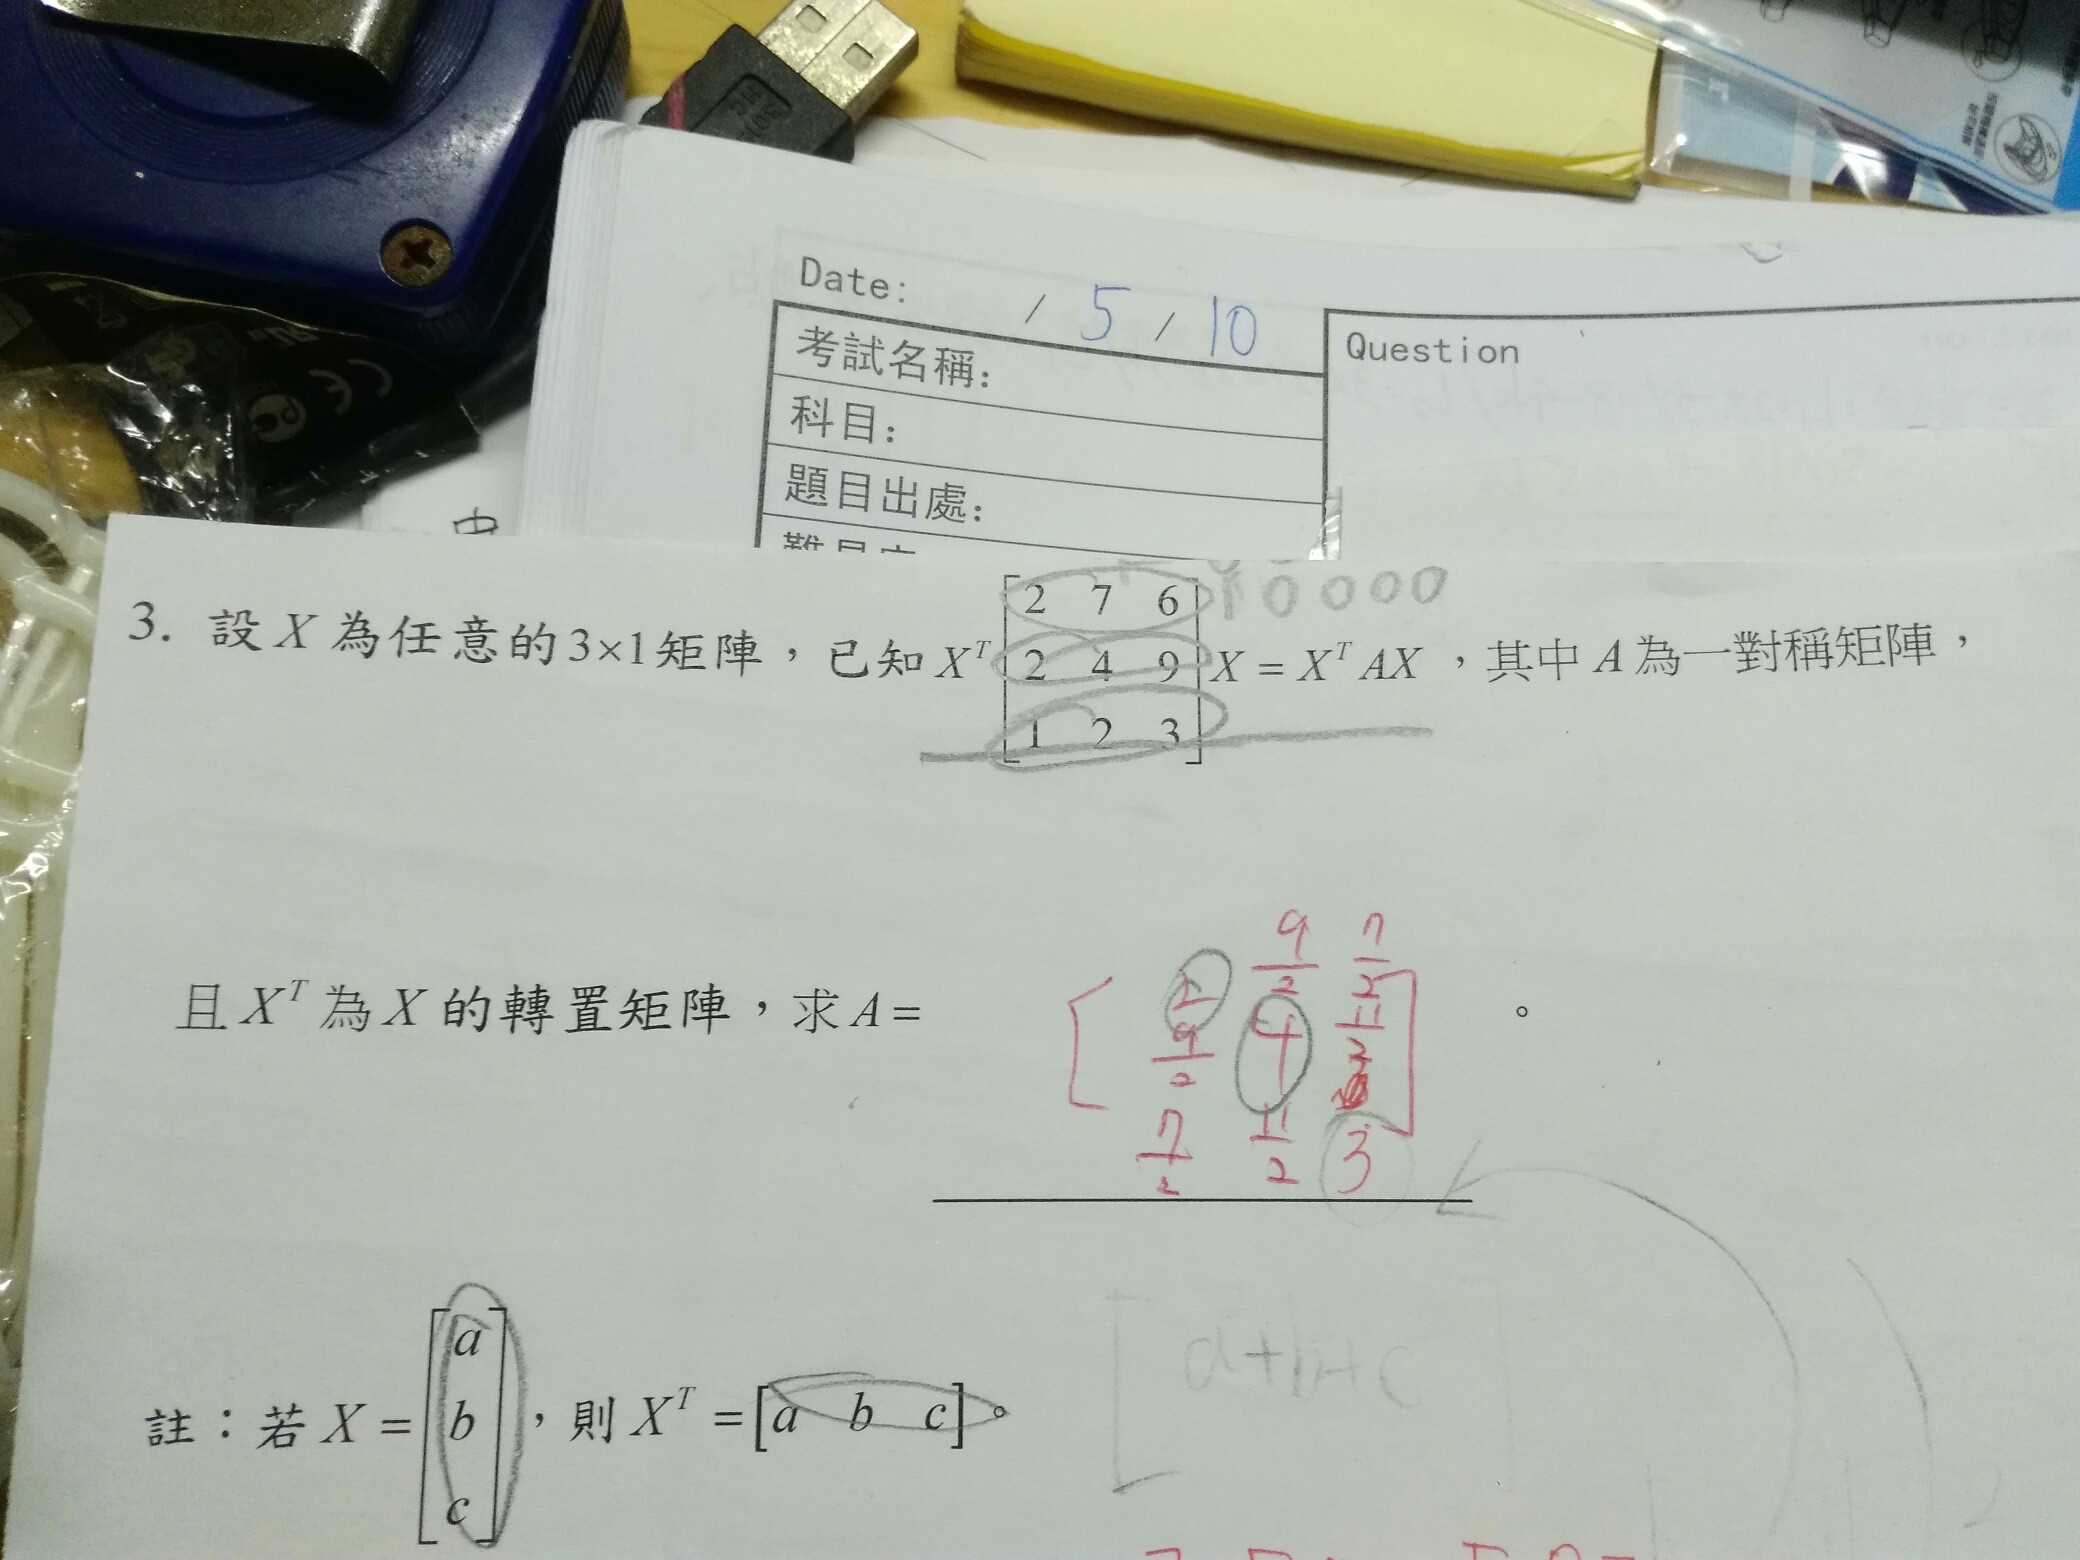 Date: / 5 / 10
考試名稱:
科目:
題目出處:
Question
中
10000
3. 設 X 為任意的 3×1 矩陣，已知 X^T [2 7 6; 2 4 9; 1 2 3] X = X^T AX ，其中 A 為一對稱矩陣，
且 X^T 為 X 的轉置矩陣，求 A = [2 9/2 7/2; 9/2 4 11/2; 7/2 11/2 3] 。
註：若 X = [a; b; c]，則 X^T = [a b c]。
a+b+c